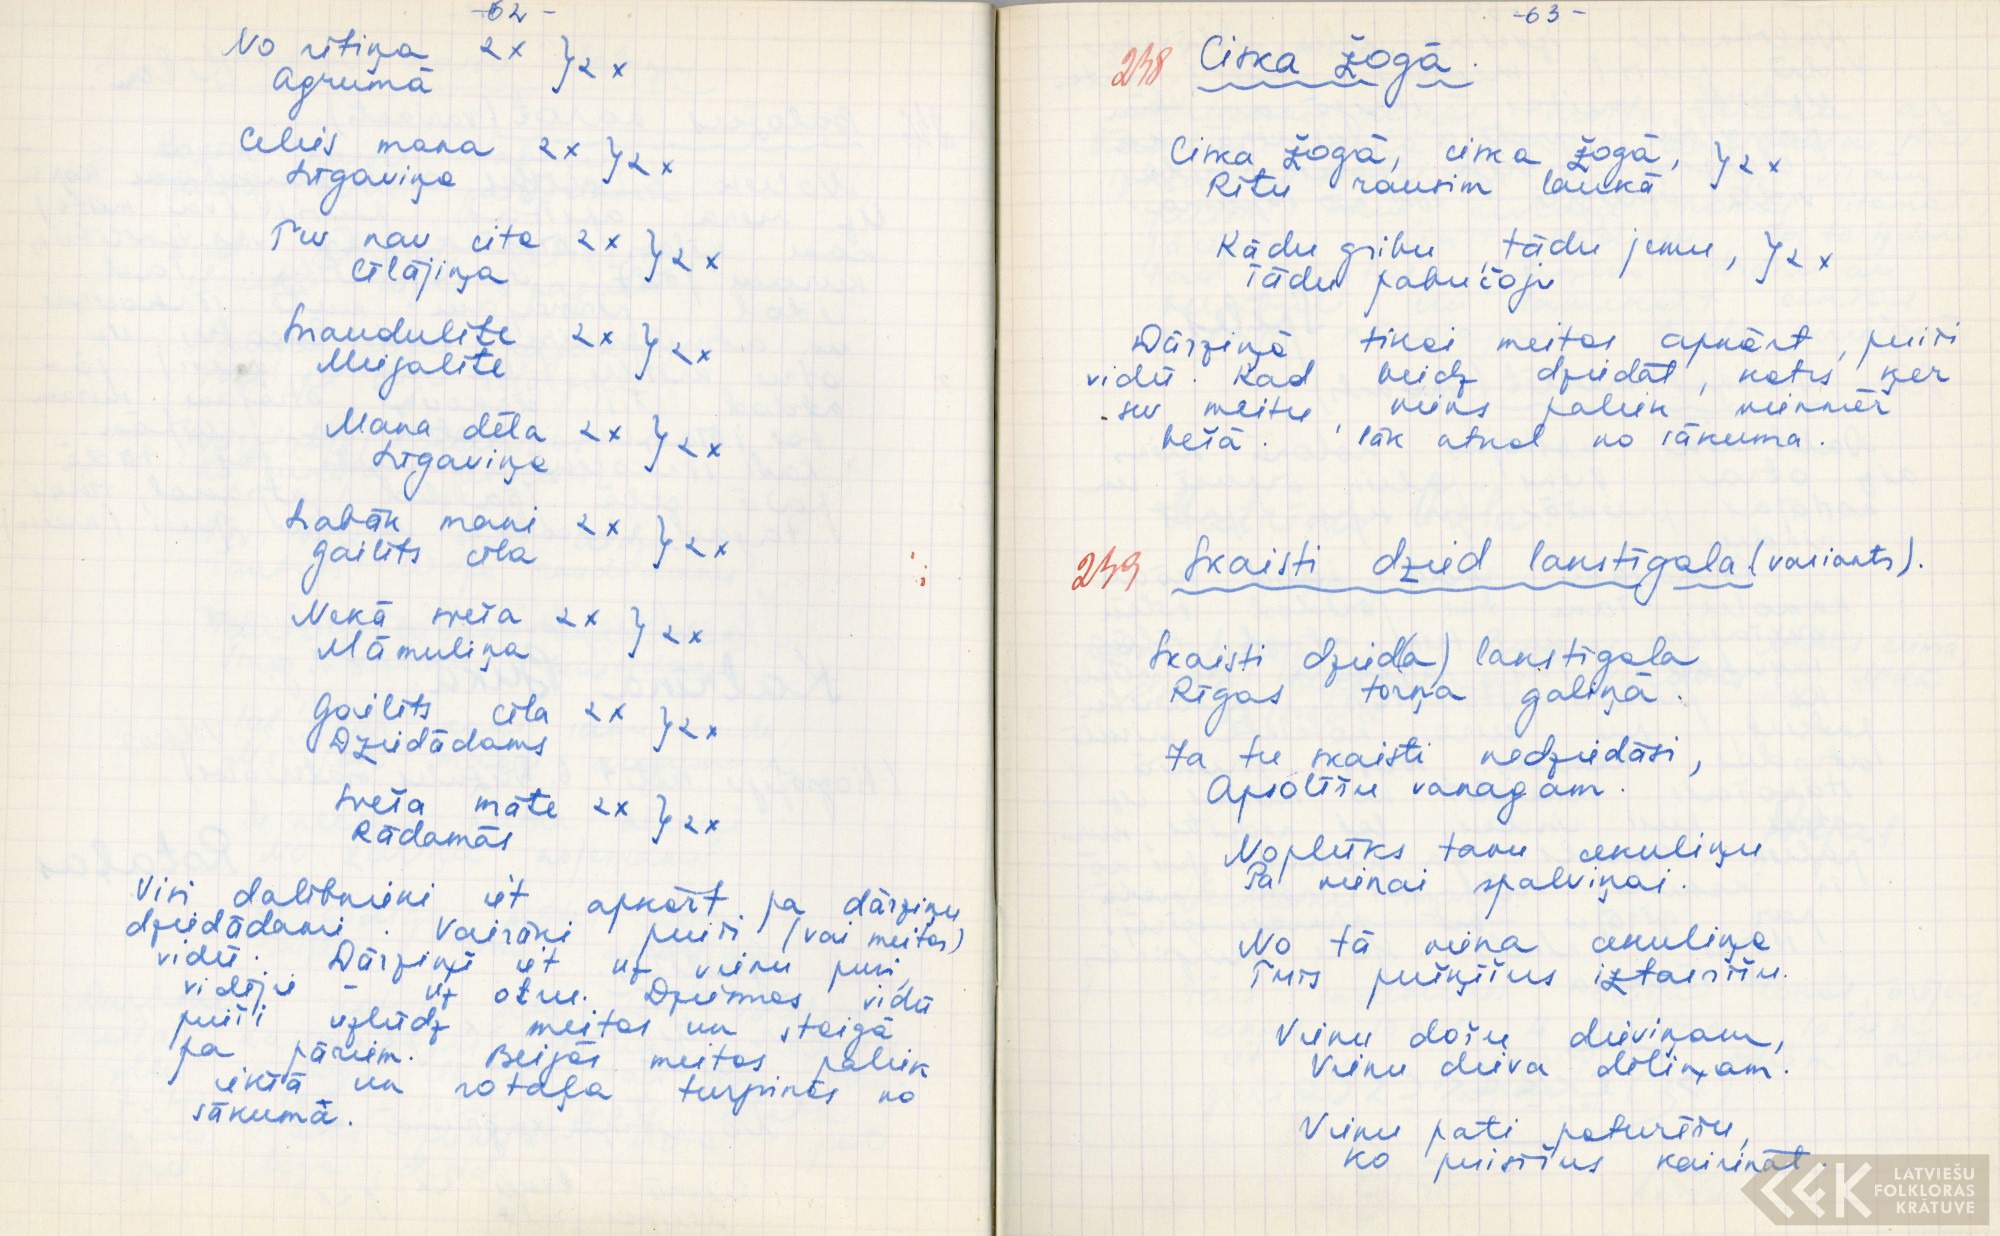 -62-
No rītiņa 2x }2x
Agrumā
Celies mana 2x }2x
Līgaviņa
Tev nav cita 2x }2x
Cēlājiņa
Snaudulīte 2x }2x
Miegalīte
Mana dēla 2x }2x
Līgaviņa
Labāk mani 2x }2x
Gailīts cēla
Nekā sveša 2x }2x
Māmuliņa
Gailīts cēla 2x }2x
Dziedādams
Sveša māte 2x }2x
Rādamās
Visi dalībnieki iet apkārt pa dārziņu
dziedādami. Vairāki puiši (vai meitas)
vidū. Dārziņš iet uz vienu pusi,
vidējie - uz otru. Dziesmas vidū
puiši uzlūdz meitas un staigā
pa pāriem. Beigās meitas paliek
iekšā un rotaļa turpinās no
sākumā.
-63-
238 Ciska žogā.
Ciska žogā, ciska žogā, }2x
Rītu rausim laukā
Kādu gribu, tādu jemu, }2x
Tādu pabučoju
Dārziņā tikai meitas apkārt, puiši
vidū. Kad beidz dziedāt, katrs ķer
sev meitu, viens paliek vienmēr
bešā. Sāk atkal no sākuma.
239 Skaisti dzied lakstīgala (variants).
Skaisti dzied(a) lakstīgala
Rīgas torņa galiņā.
Ja tu skaisti nedziedāsi,
Apsolīšu vanagam.
Noplūks tavu cekuliņu
Pa vienai spalviņai.
No tā viena cekuliņa
Trīs pušķīšus iztaisīšu.
Vienu došu dieviņam,
Vienu dieva dēliņam.
Vienu pati paturēšu,
Ko puisīšus kaitināt.
LATVIEŠU
FOLKLORAS
KRĀTUVE